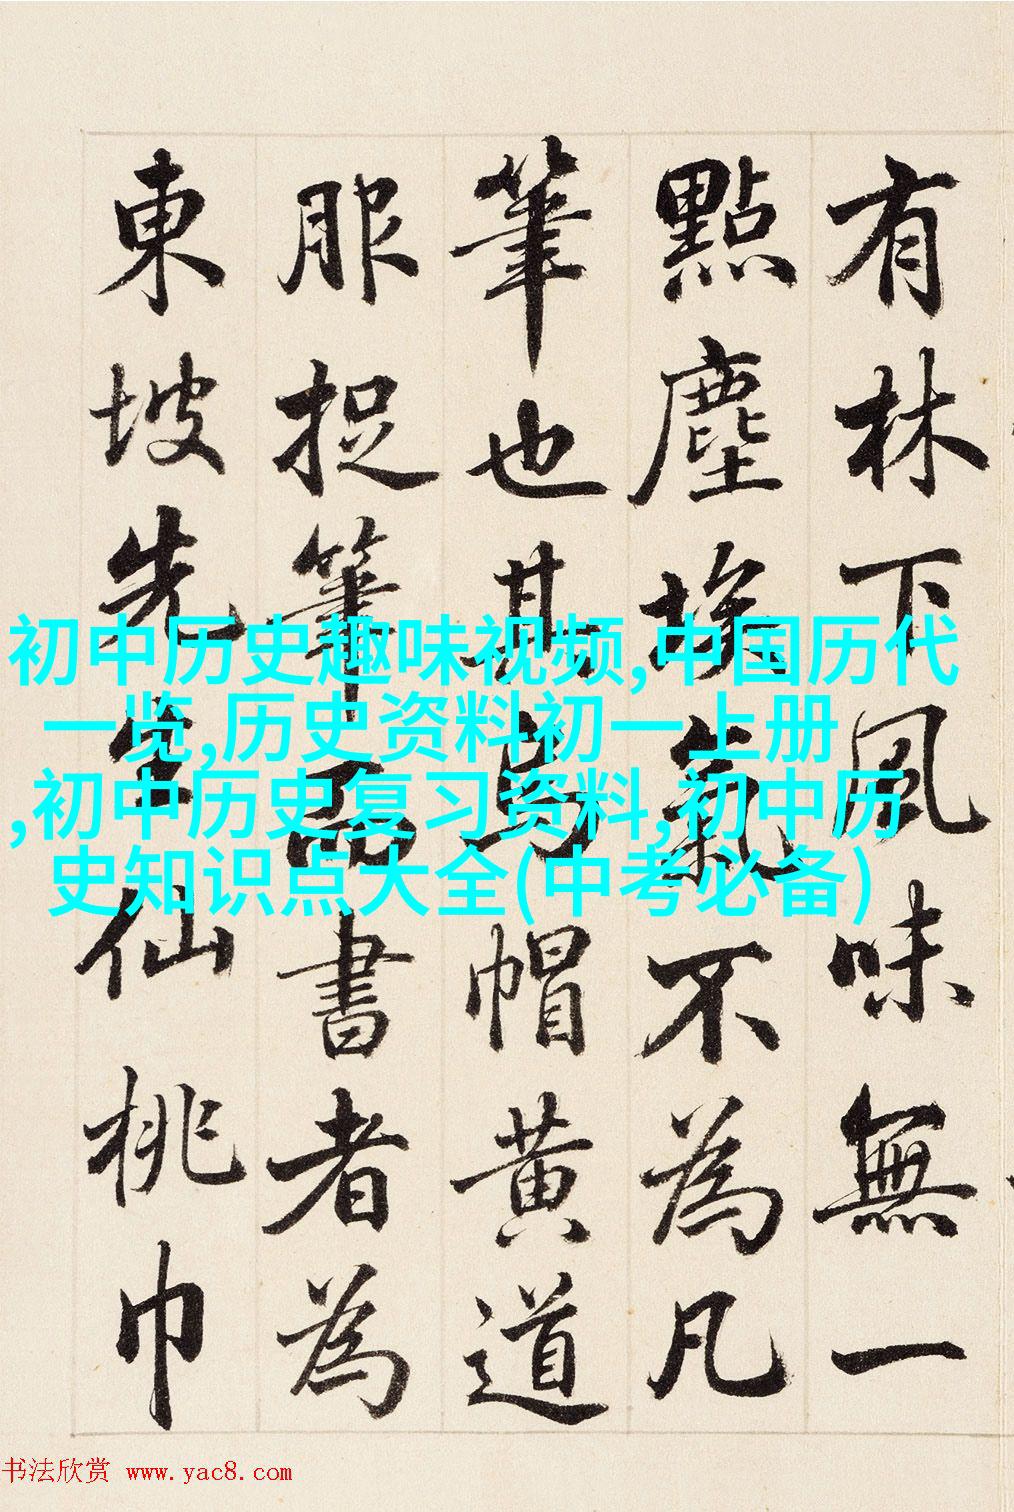 有林下風味無一
點塵埃氣不為凡
筆也其烏帽黃道
服捉筆而書者為
東坡先生仙桃巾
初中历史趣味视频,中国历代
一览,历史资料初一上册
,初中历史复习资料,初中历
史知识点大全(中考必备)
书法欣赏 www.yac8.com